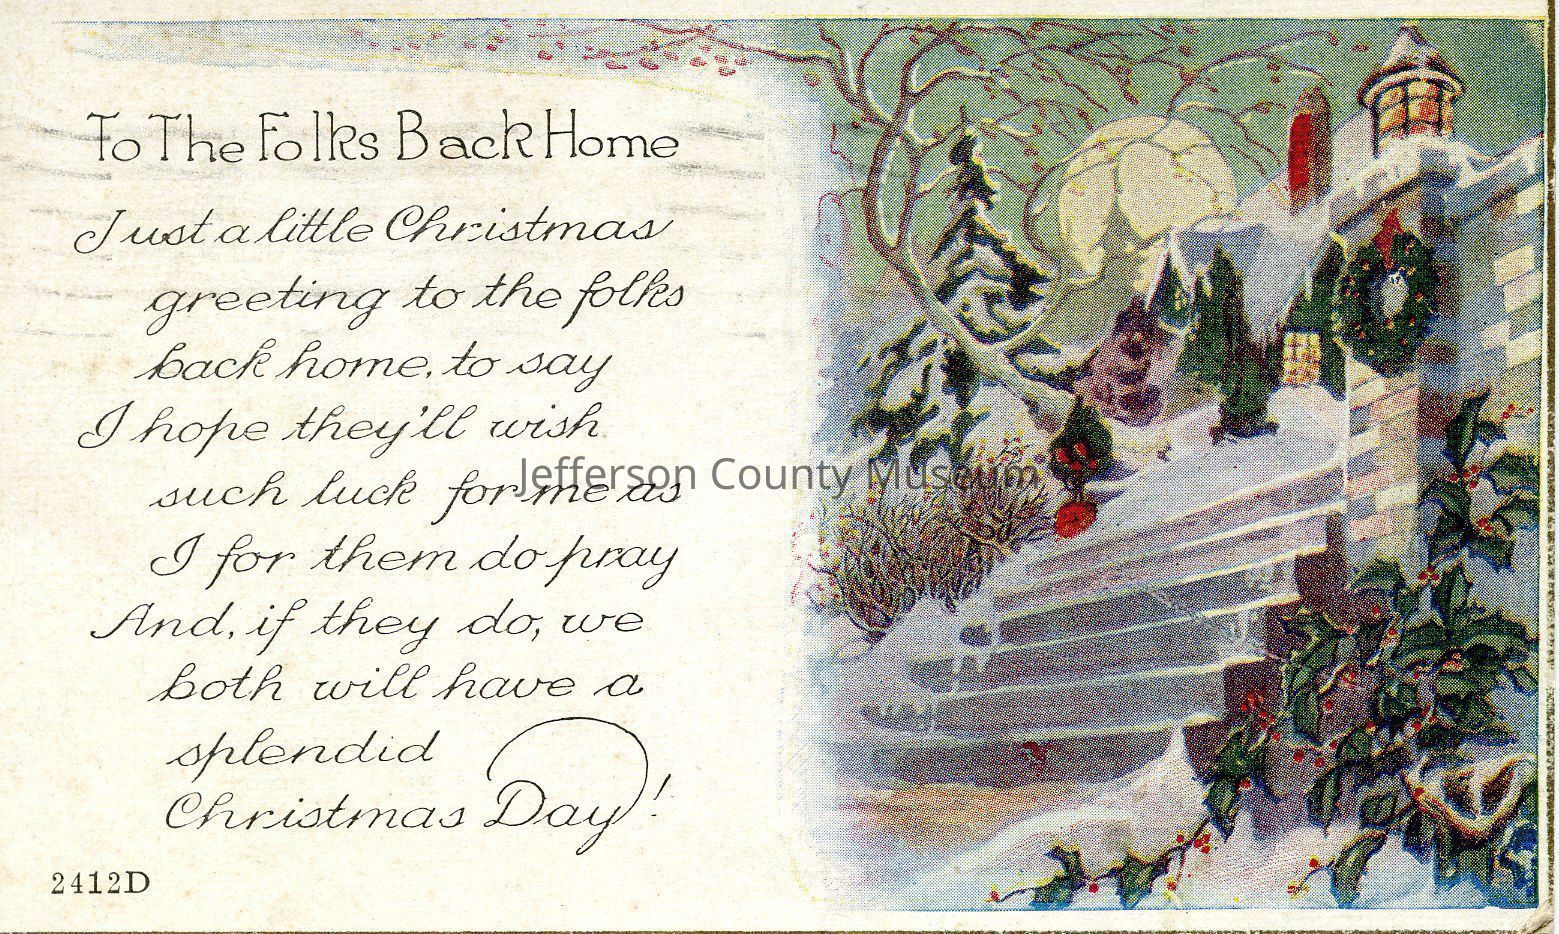 To The Folks Back Home
Just a little Christmas
greeting to the folks
back home, to say
I hope they'll wish
such luck for me as
I for them do pray
And, if they do, we
both will have a
splendid
Christmas Day!
2412D
Jefferson County Museum